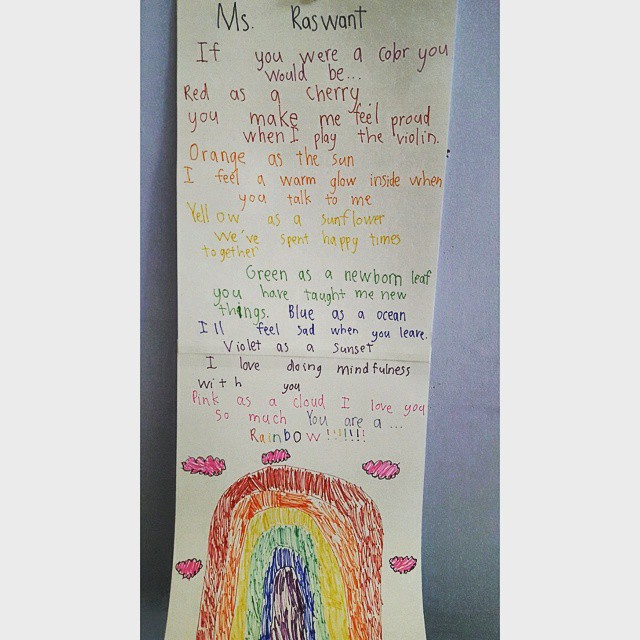 Ms. Raswant
If you were a color you
would be...
Red as a cherry
you make me feel proud
when I play the violin.
Orange as the sun
I feel a warm glow inside when
you talk to me
Yellow as a sunflower
We've spent happy times
together
Green as a newborn leaf
you have taught me new
things. Blue as a ocean
I ll feel sad when you leave.
Violet as a sunset
I love doing mindfulness
with you
Pink as a cloud I love you
So much You are a ...
Rainbow!!!!!!!